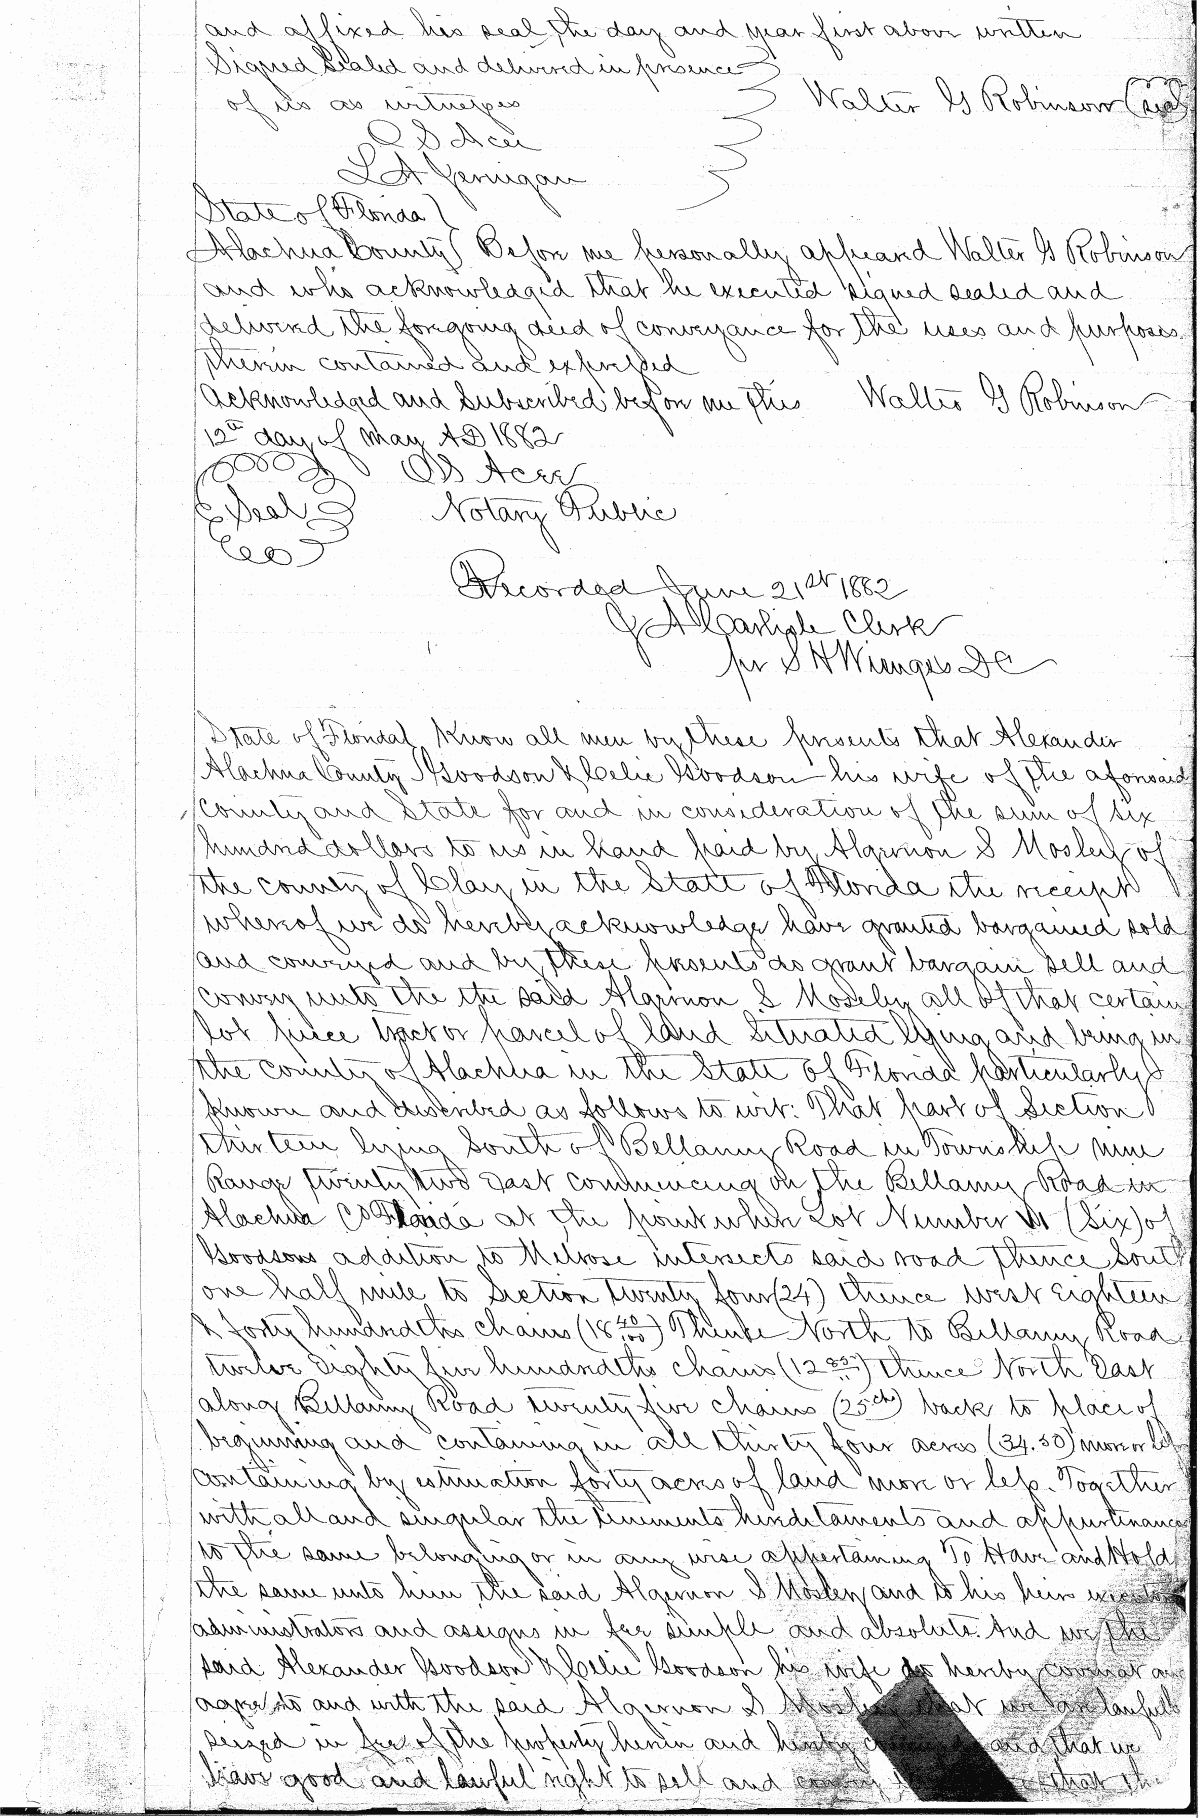 and affixed his seal the day and year first above written
Signed Sealed and delivered in presence
of us as witnesses Walter G Robinson (seal)
O S Acer
L A Jernigan
State of Florida
Alachua County Before me personally appeared Walter G Robinson
and who acknowledged that he executed signed sealed and
delivered the foregoing deed of conveyance for the uses and purposes
therein contained and expressed
Acknowledged and Subscribed before me this Walter G Robinson
12th day of May AD 1882
O S Acer
Seal Notary Public
Recorded June 21st 1882
J A Carlisle Clerk
pr S H Wienges DC
State of Florida Know all men by these presents that Alexander
Alachua County Goodson & Celie Goodson his wife of the aforesaid
County and State for and in consideration of the sum of six
hundred dollars to us in hand paid by Algernon S Mosley of
the county of Clay in the State of Florida the receipt
whereof we do hereby acknowledge have granted bargained sold
and conveyed and by these presents do grant bargain sell and
convey unto the the said Algernon S Moseley all of that certain
lot piece tract or parcel of land situated lying and being in
the county of Alachua in the State of Florida particularly
known and described as follows to wit: That part of Section
thirteen lying South of Bellamy Road in Township nine
Range twenty two East commencing on the Bellamy Road in
Alachua Co Florida at the point where Lot Number VI (Six) of
Goodsons addition to Melrose intersects said road thence South
one half mile to Section twenty four (24) thence west Eighteen
& forty hundredths chains (18 40/100) Thence North to Bellamy Road
twelve Eighty five hundredths chains (12 85/..) thence North East
along Bellamy Road twenty five chains (25 chs) back to place of
beginning and containing in all thirty four acres (34.50) more or less
containing by estimation forty acres of land more or less. Together
with all and singular the tenements hereditaments and appurtenances
to the same belonging or in any wise appertaining To Have and Hold
the same unto him the said Algernon S Mosley and to his heirs executors
administrators and assigns in fee simple and absolute. And we the
said Alexander Goodson & Celie Goodson his wife do hereby covenant and
agree to and with the said Algernon S Mosley that we are lawfully
seized in fee of the property herein and hereby and that we
have good and lawful right to sell and convey that the